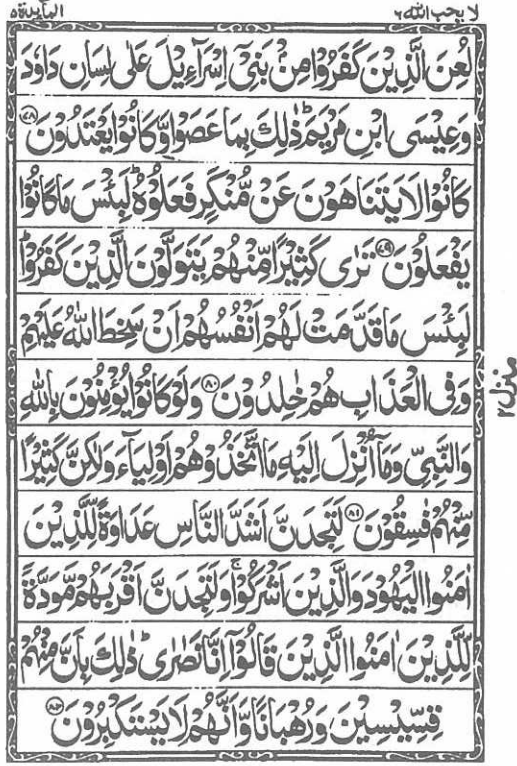 لا یحب الله ۶
المآئدة ۵
لُعِنَ الَّذِيْنَ كَفَرُوْا مِنْۢ بَنِيْۤ اِسْرَآءِيْلَ عَلٰى لِسَانِ دَاوٗدَ
وَعِيْسَى ابْنِ مَرْيَمَ ؕ ذٰلِكَ بِمَا عَصَوْا وَّكَانُوْا يَعْتَدُوْنَ ۝۷۸
كَانُوْا لَا يَتَنَاهَوْنَ عَنْ مُّنْكَرٍ فَعَلُوْهُ ؕ لَبِئْسَ مَا كَانُوْا
يَفْعَلُوْنَ ۝۷۹ تَرٰى كَثِيْرًا مِّنْهُمْ يَتَوَلَّوْنَ الَّذِيْنَ كَفَرُوْا ؕ
لَبِئْسَ مَا قَدَّمَتْ لَهُمْ اَنْفُسُهُمْ اَنْ سَخِطَ اللّٰهُ عَلَيْهِمْ
وَفِي الْعَذَابِ هُمْ خٰلِدُوْنَ ۝۸۰ وَلَوْ كَانُوْا يُؤْمِنُوْنَ بِاللّٰهِ
وَالنَّبِيِّ وَمَاۤ اُنْزِلَ اِلَيْهِ مَا اتَّخَذُوْهُمْ اَوْلِيَآءَ وَلٰكِنَّ كَثِيْرًا
مِّنْهُمْ فٰسِقُوْنَ ۝۸۱ لَتَجِدَنَّ اَشَدَّ النَّاسِ عَدَاوَةً لِّلَّذِيْنَ
اٰمَنُوا الْيَهُوْدَ وَالَّذِيْنَ اَشْرَكُوْا ۚ وَلَتَجِدَنَّ اَقْرَبَهُمْ مَّوَدَّةً
لِّلَّذِيْنَ اٰمَنُوا الَّذِيْنَ قَالُوْۤا اِنَّا نَصٰرٰى ؕ ذٰلِكَ بِاَنَّ مِنْهُمْ
قِسِّيْسِيْنَ وَرُهْبَانًا وَّاَنَّهُمْ لَا يَسْتَكْبِرُوْنَ ۝۸۲
منزل ۲